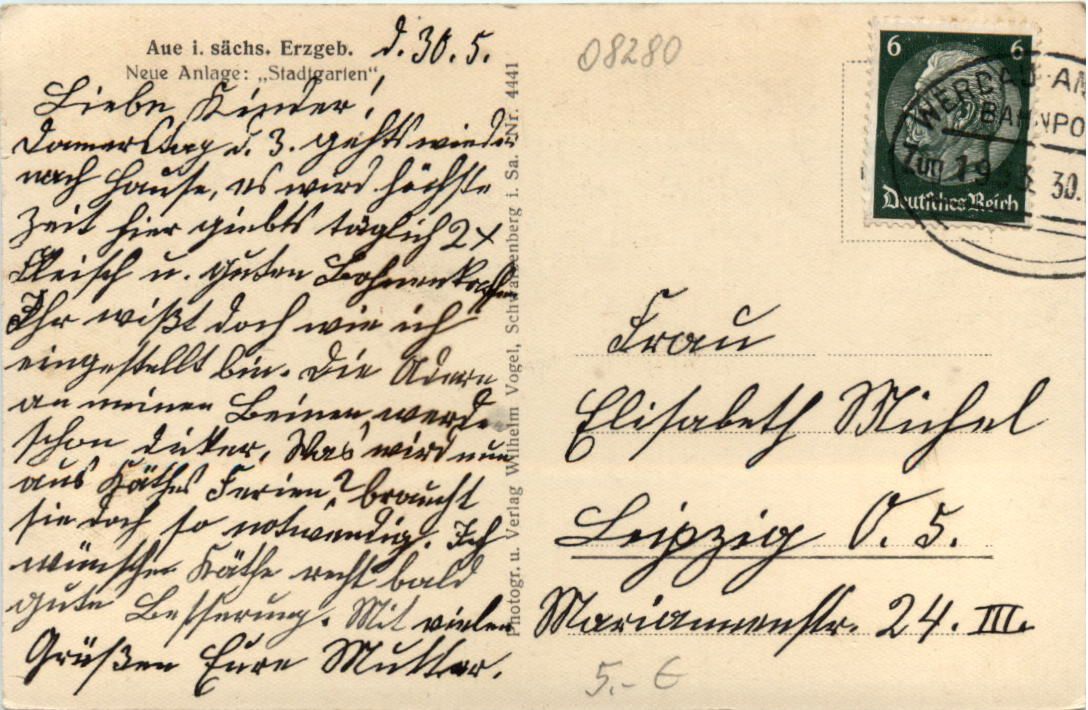 Aue i. sächs. Erzgeb.
Neue Anlage: „Stadtgarten“
d. 30. 5.
Liebe Kinder!
Donnerstag d. 3. gehts wieder
nach Hause, es wird höchste
Zeit hier giebts täglich 2x
Fleisch u. guten Bohnenkaffee
Ihr wißt doch wie ich
eingestellt bin. Die Adern
an meinen Beinen werden
schon dicker. Was wird nun
aus Käthes Ferien? braucht
sie doch so notwendig. Ich
wünsche Käthe recht bald
gute Besserung. Mit vielen
Grüßen Eure Mutter.
Photogr. u. Verlag Wilhelm Vogel, Schwarzenberg i. Sa. Nr. 4441
08280
6 6
Deutsches Reich
WERDAU
BAHNPO
Zug 19
30.
Frau
Elisabeth Michel
Leipzig O. 5.
Mariannenstr. 24. III.
5.- €